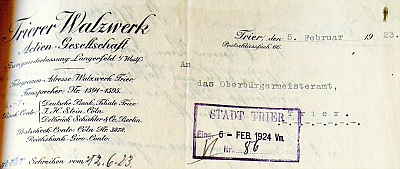 Trierer Walzwerk
Actien-Gesellschaft
Zweigniederlassung: Langerfeld i/Westf.
Trier, den 5. Februar 1923.
Postschliessfach 66.
Telegramm-Adresse: Walzwerk Trier.
Fernsprecher Nr. 1591-1595.
An
das Oberbürgermeisteramt,
Trier.
Bank-Conto:
Deutsche Bank, Filiale Trier
J. H. Stein, Cöln.
Delbrück Schickler & Co. Berlin.
Postscheck-Conto: Cöln Nr.
Reichsbank-Giro-Conto.
STADT TRIER
Eing. 6 - FEB. 1924 Vm.
Nr. 86
Schreiben vom 12.6.23.